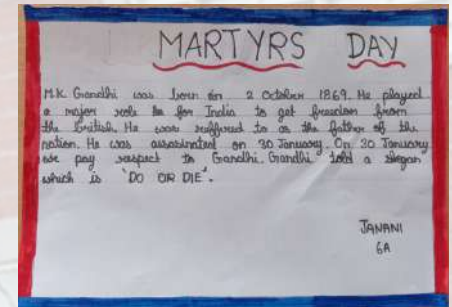 MARTYRS DAY
M.K. Gandhi was born on 2 October 1869. He played
a major role for India to get freedom from
the British. He was reffered to as the father of the
nation. He was assasinated on 30 January. On 30 January
we pay respect to Gandhi. Gandhi told a slogan
which is 'DO OR DIE'.
JANANI
6A